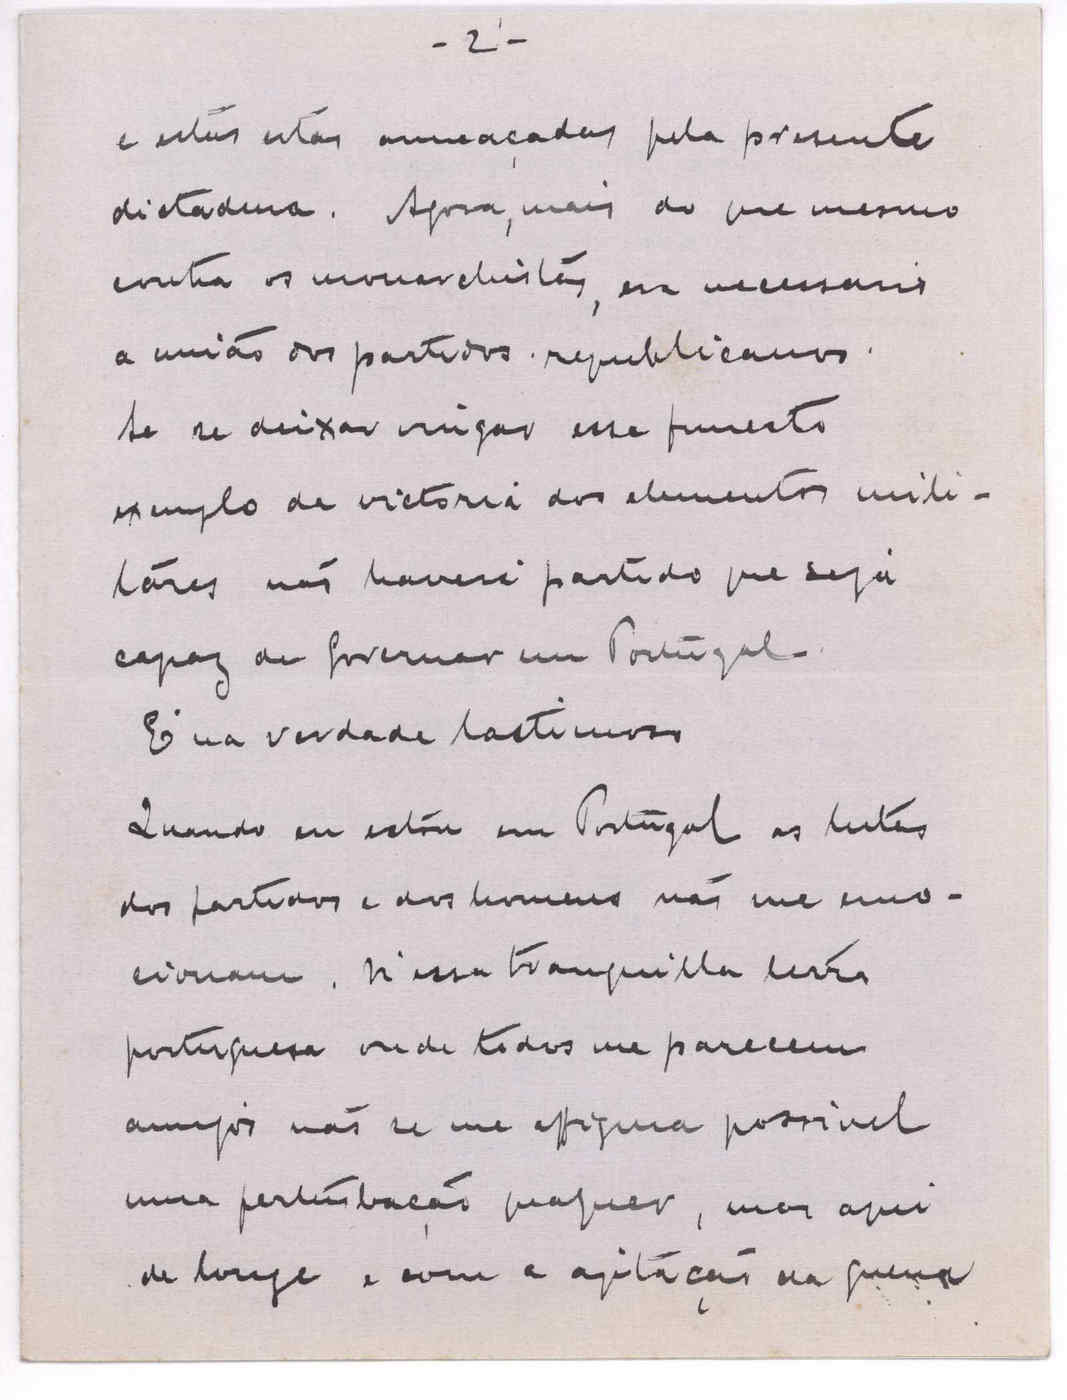 - 2 -
e estas estão ameaçadas pela presente
dictadura. Agora, mais do que mesmo
contra os monarchistas, era necessaria
a união dos partidos republicanos.
Se se deixar vingar esse funesto
exemplo da victoria dos elementos mili-
tares não haverá partido que seja
capaz de governar em Portugal.
E' na verdade lastimoso
Quando eu estou em Portugal as lutas
dos partidos e dos homens não me emo-
cionam. N'essa tranquilla terra
portuguesa onde todos me parecem
amigos não se me affigura possivel
uma perturbação qualquer, mas aqui
de longe e com a agitação da guerra